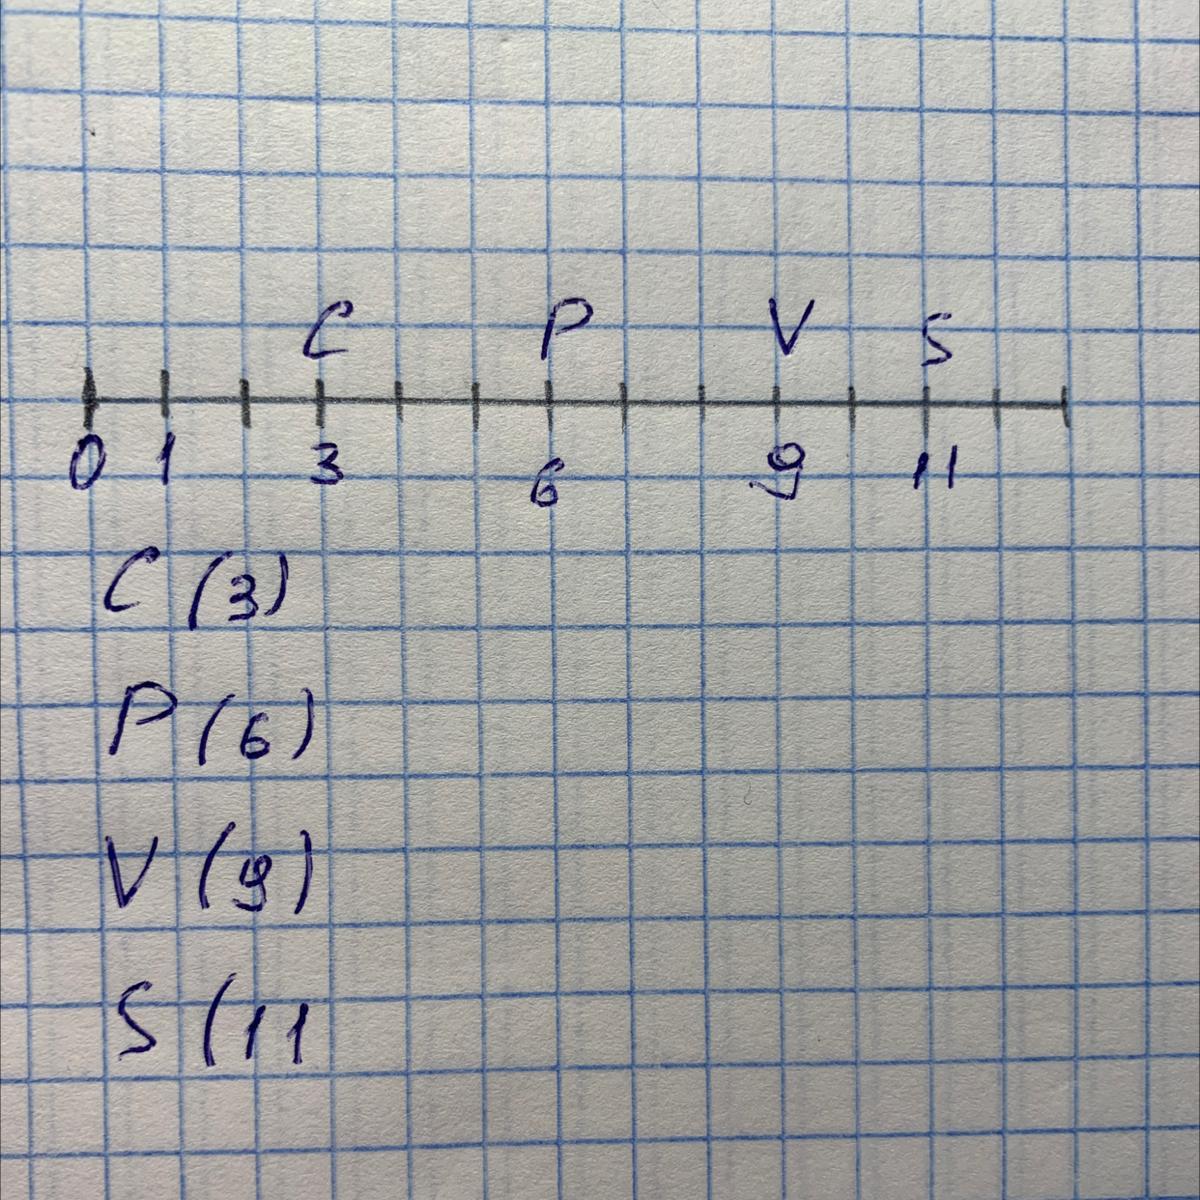 C P V S
0 1 3 6 9 11
C (3)
P (6)
V (9)
S (11